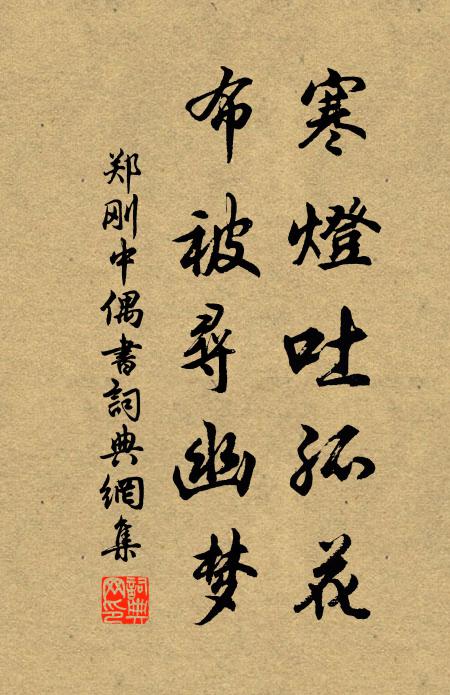 寒燈吐孤花
布被尋幽梦
郑刚中偶書詞典網集
詞典网印